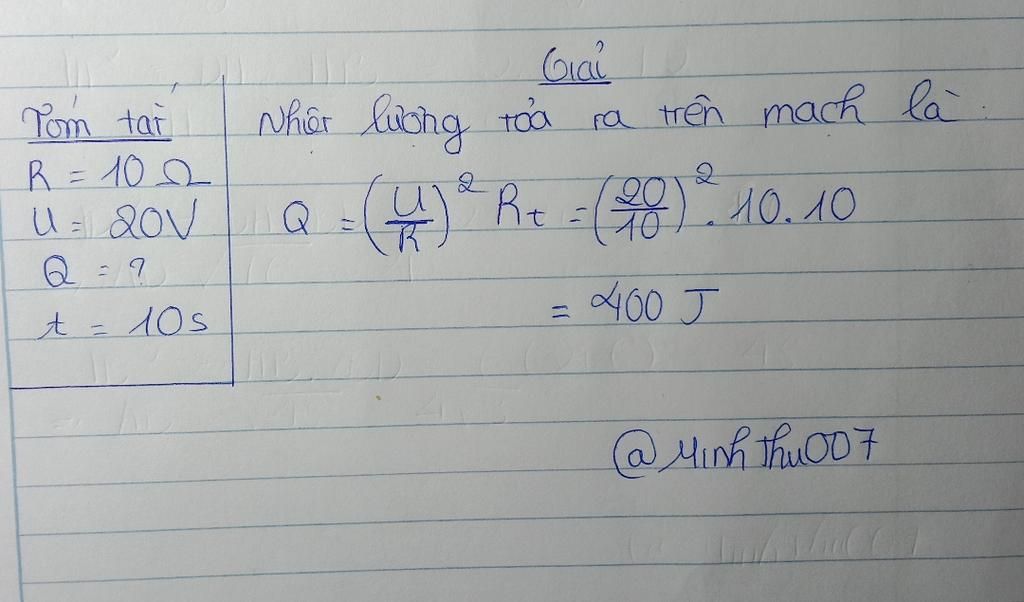 Giải
Tóm tắt
R = 10 Ω
U = 20V
Q = ?
t = 10s
Nhiệt lượng tỏa ra trên mạch là:
Q = (U/R)² Rt = (20/10)² . 10 . 10
= 400 J
@Minhthu007